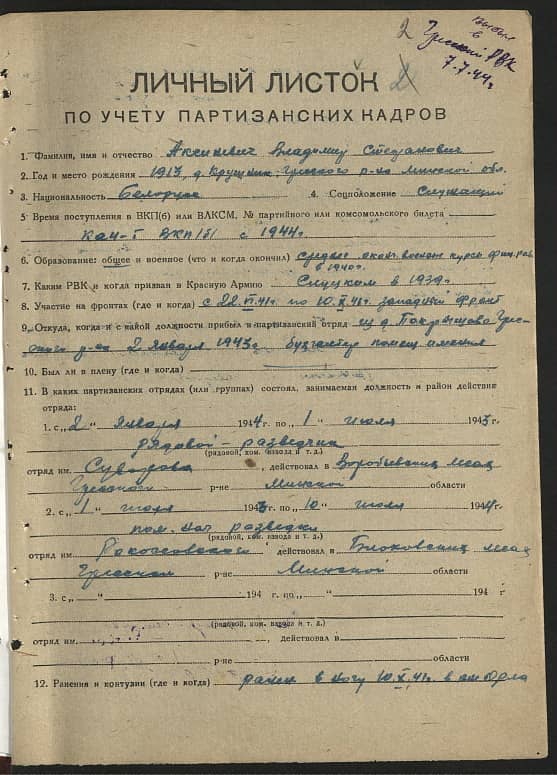 2 выбыл
в
Гресский РВК
7.7.44г
ЛИЧНЫЙ ЛИСТОК 2
ПО УЧЕТУ ПАРТИЗАНСКИХ КАДРОВ
1. Фамилия, имя и отчество Аксиневич Владимир Степанович
2. Год и место рождения 1913, д. Крушник Гресского р-на Минской обл.
3. Национальность Белорус 4. Соцположение Служащий
5 Время поступления в ВКП(б) или ВЛКСМ, № партийного или комсомольского билета
кан-т ВКП(б) с 1944г.
6. Образование: общее и военное (что и когда окончил) среднее окон. военные курсы фин. раб
в 1940г.
7. Каким РВК и когда призван в Красную Армию Слуцком в 1939г.
8. Участие на фронтах (где и когда) с 22.VI.41г. по 10.X.41г. западный фронт
9. Откуда, когда и с какой должности прибыл в партизанский отряд из д. Покрашево Грес-
ского р-на 2 января 1943г бухгалтер помещ имения
10. Был ли в плену (где и когда)
11. В каких партизанских отрядах (или группах) состоял, занимаемая должность и район действия
отряда:
1. с „2“ января 1944г. по „1“ июля 1943г.
рядовой - разведчик
(рядовой, ком. взвода и т. д.)
отряд им. Суворова, действовал в Воробьевских лесах
Гресского р-не Минской области
2. с „1“ июля 1943г. по „10“ июля 1944г.
пом. нач разведки
(рядовой, ком. взвода и т. д.)
отряд им. Рокоссовского действовал в лесах
Гресском р-не Минской области
3. с „ “ 194 г. по „ “ 194 г
(рядовой, ком. взвода и т. д.)
отряд им. , действовал в
р-не области
12. Ранения и контузии (где и когда) ранен в ногу 10.X.41г. в